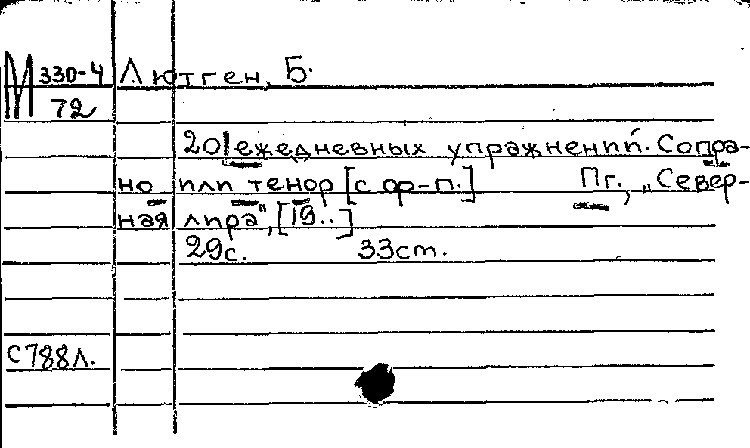 М 330-4 Лютген, Б.
72
20 ежедневных упражнений. Сопра-
но или тенор [с ф-п.] Пг., „Север-
ная лира", [19..]
29с. 33см.
С788л.